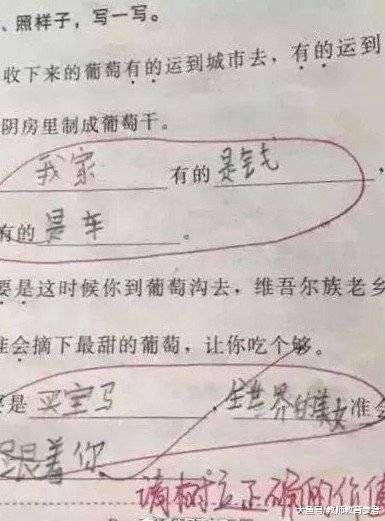 、照样子，写一写。
收下来的葡萄有的运到城市去，有的运到
阴房里制成葡萄干。
我家有的是钱，
有的是车。
要是这时候你到葡萄沟去，维吾尔族老乡
准会摘下最甜的葡萄，让你吃个够。
要是买宝马，全世界的美女准会
跟着你
请树立正确的价值
大鱼号/教师教育参考